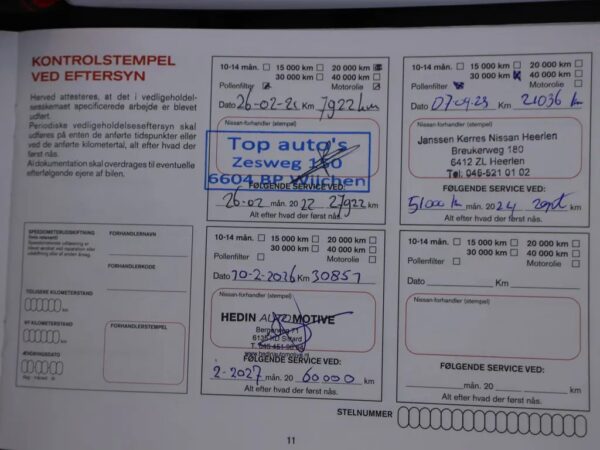 KONTROLSTEMPEL
VED EFTERSYN
Herved attesteres, at det i vedligeholdel-
sesskemaet specificerede arbejde er blevet
udført.
Periodiske vedligeholdelseseftersyn skal
udføres på enten de anførte tidspunkter eller
ved de anførte kilometertal, alt efter hvad der
først nås.
Al dokumentation skal overdrages til eventuelle
efterfølgende ejere af bilen.
SPEEDOMETERUDSKIFTNING
TIDLIGERE KILOMETERSTAND
NY KILOMETERSTAND
ÆNDRINGSDATO
FORHANDLERNAVN
FORHANDLERKODE
FORHANDLERSTEMPEL
10-14 mån. 15 000 km 20 000 km
30 000 km 40 000 km
Pollenfilter Motorolie
Dato 26-02-21 Km 7922 km
Nissan-forhandler (stempel)
Top auto's
Zesweg
6604 BP Wijchen
FØLGENDE SERVICE VED:
26-02 mån. 20 22 27922 km
Alt efter hvad der først nås.
10-14 mån. 15 000 km 20 000 km
30 000 km 40 000 km
Pollenfilter Motorolie
Dato 07.09.23 Km 21036 km
Nissan-forhandler (stempel)
Janssen Kerres Nissan Heerlen
Breukerweg 180
6412 ZL Heerlen
Tel: 045-521 01 02
FØLGENDE SERVICE VED:
51000 km mån. 20 24 sept km
Alt efter hvad der først nås.
10-14 mån. 15 000 km 20 000 km
30 000 km 40 000 km
Pollenfilter Motorolie
Dato 10-2-2026 Km 30851
Nissan-forhandler (stempel)
HEDIN AUTOMOTIVE
Bergerweg 71
6135 KD Sittard
www.hedinautomotive.nl
FØLGENDE SERVICE VED:
2-2027 mån. 20 60000 km
Alt efter hvad der først nås.
10-14 mån. 15 000 km 20 000 km
30 000 km 40 000 km
Pollenfilter Motorolie
Dato Km
Nissan-forhandler (stempel)
FØLGENDE SERVICE VED:
mån. 20 km
Alt efter hvad der først nås.
STELNUMMER
11